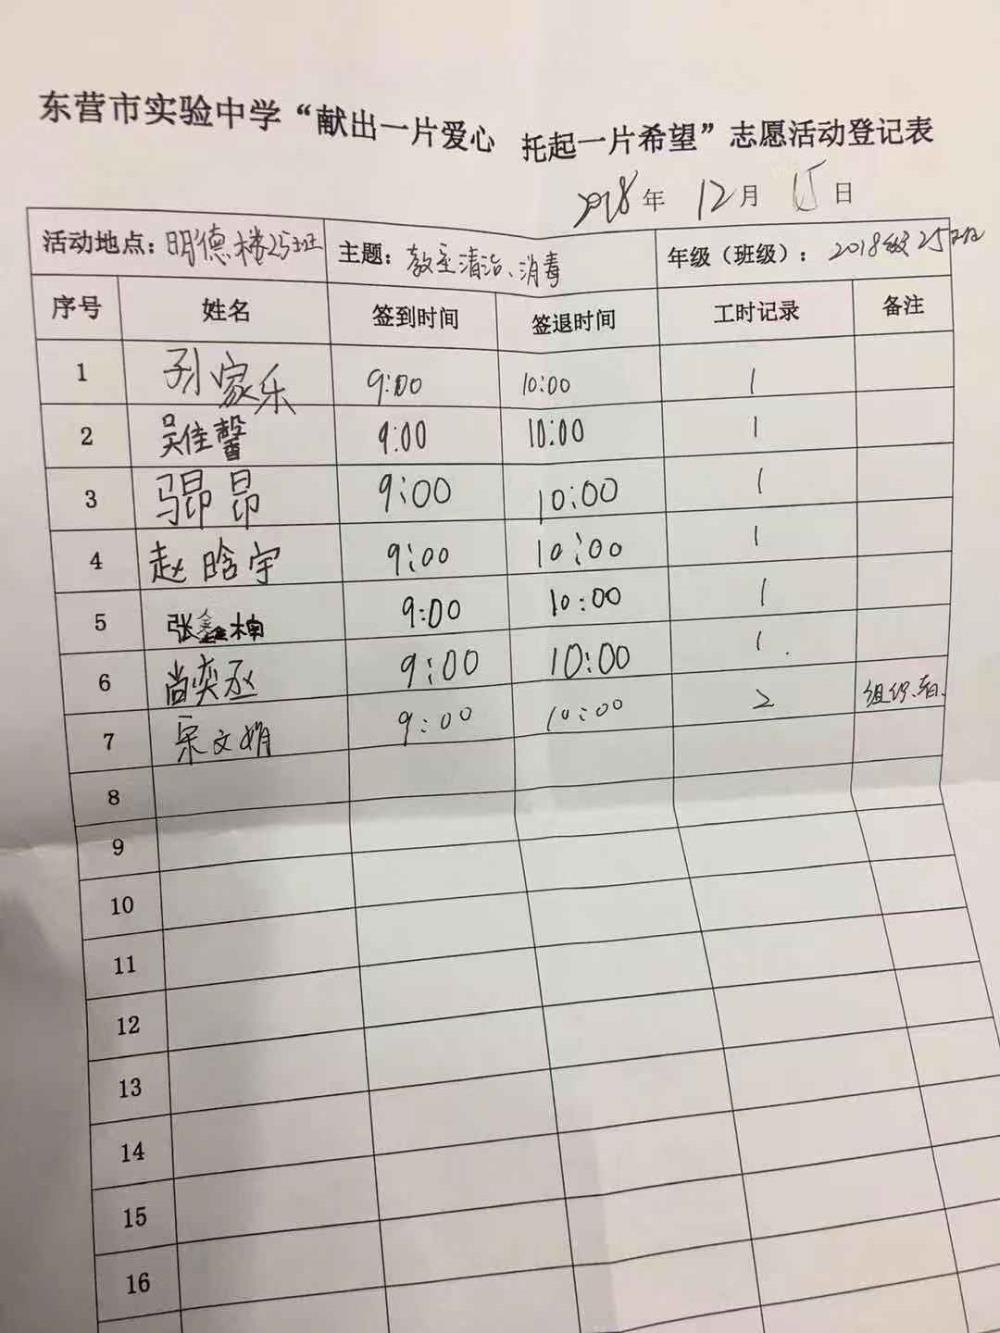 东营市实验中学“献出一片爱心 托起一片希望”志愿活动登记表
2018年 12月 15日
活动地点：明德楼25班 主题：教室清洁、消毒 年级（班级）：2018级25班
序号 姓名 签到时间 签退时间 工时记录 备注
1 孙家乐 9:00 10:00 1
2 吴佳馨 9:00 10:00 1
3 马昂昂 9:00 10:00 1
4 赵晗宇 9:00 10:00 1
5 张鑫楠 9:00 10:00 1
6 尚奕丞 9:00 10:00 1
7 宋文娟 9:00 10:00 2 组织、
8
9
10
11
12
13
14
15
16